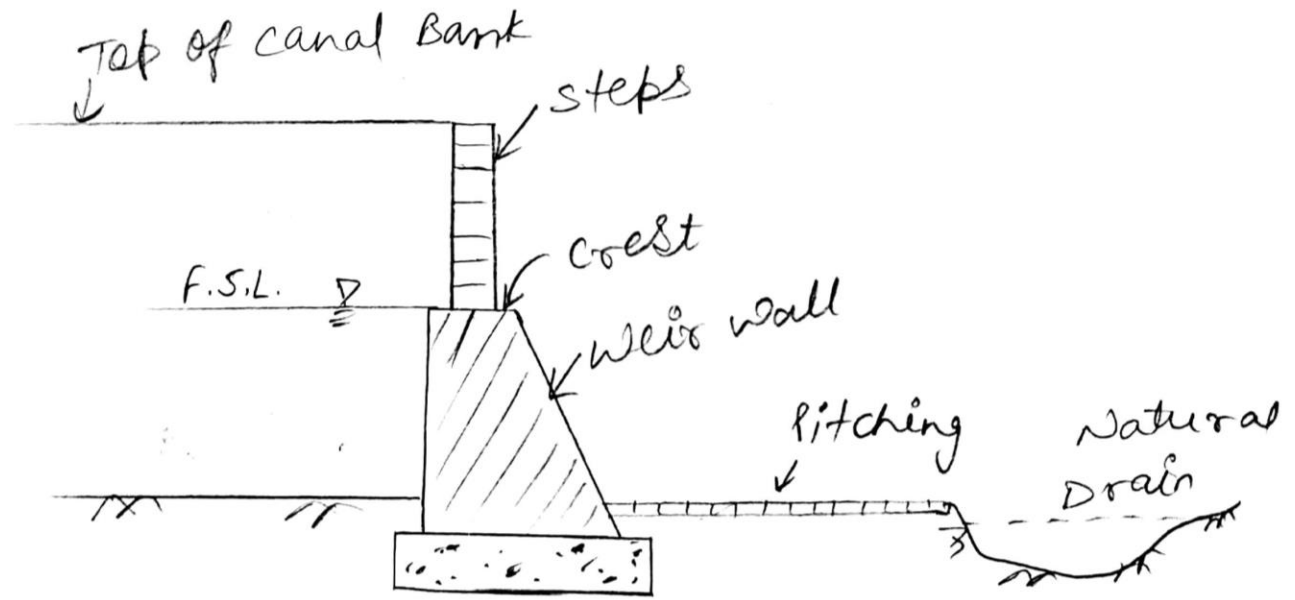 Top of canal Bank
steps
crest
F.S.L.
Weir wall
Pitching
Natural
Drain